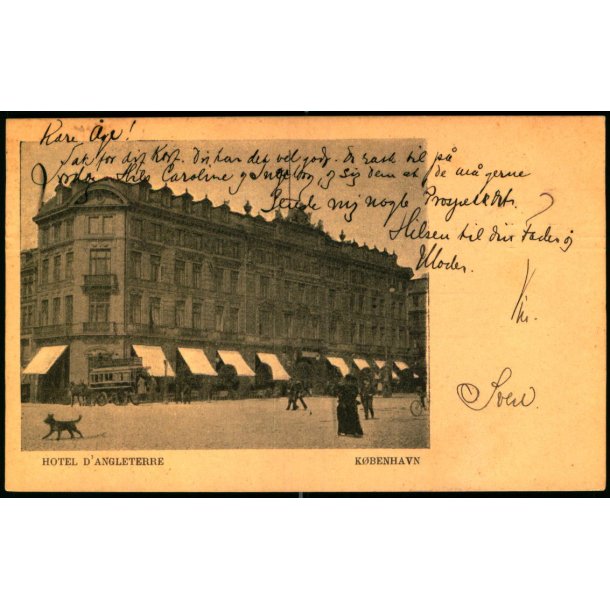 Kære Åge!
Tak for dit Kort. Du har det vel godt. De
Hils Caroline og Ingeborg, og sig dem at de må gerne
sende mig nogle Prospektkort.
Hilsen til din Fader og
Moder.
Sven.
HOTEL D'ANGLETERRE
KØBENHAVN